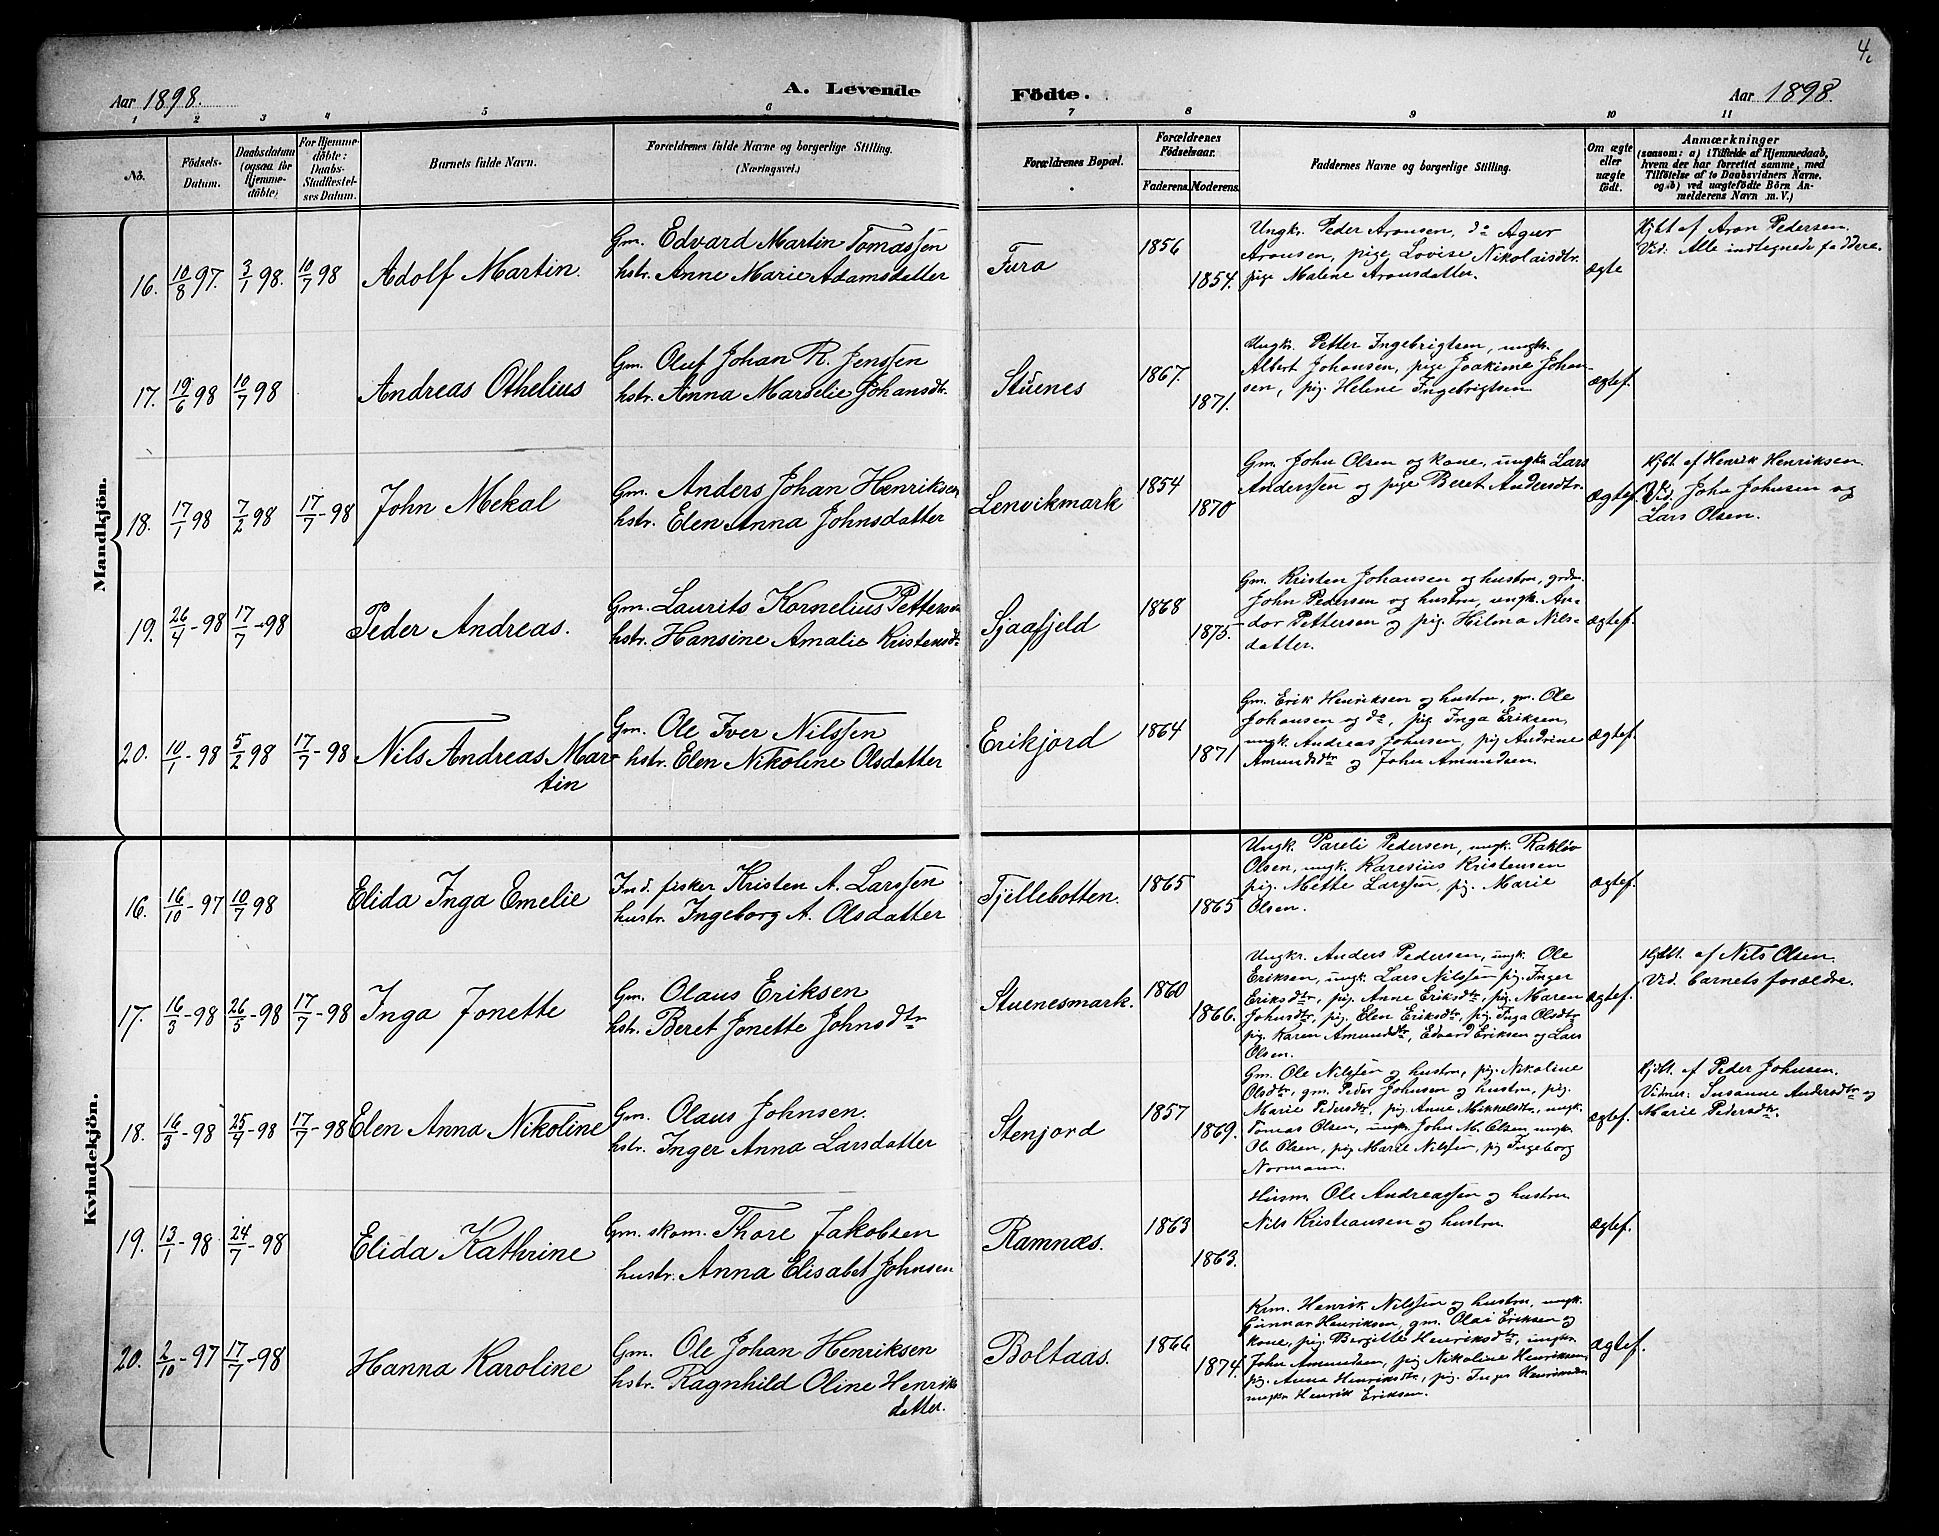 4.
Aar 1898.
A. Levende
Födte.
Aar 1898.
1 2 3 4 5 6 7 8 9 10 11
No.
Födsels-
Datum.
Daabsdatum
(ogsaa for
Hjemme-
döbte)
For Hjemme-
döbte:
Daabs-
Stadfæstel-
ses Datum.
Barnets fulde Navn.
Forældrenes fulde Navne og borgerlige Stilling.
(Næringsvei.)
Forældrenes Bopæl.
Forældrenes
Födselsaar.
Faderens. Moderens.
Faddernes Navne og borgerlige Stilling.
Om ægte
eller
uægte
födt.
Anmærkninger
(saasom: a) i Tilfælde af Hjemmedaab,
hvem der har forrettet samme, med
Tilföielse af to Daabsvidners Navne,
og b) ved uægtefödte Börn An-
melderens Navn m. V.)
Mandkjön.
16. 10/8 97. 3/1 98. 10/7 98
Adolf Martin.
Gm. Edvard Martin Tomassen
hstr. Anne Marie Adamsdatter
Fura
1856
1854.
Ungkr. Peder Aronsen, do Agur
Aronsen, pige Lovise Nikolaisdtr.
pige Malene Aronsdatter.
ægte
Hjbt af Aron Pedersen.
Vid. Alle indtegnede faddere.
17. 19/6 98 10/7 98
Andreas Othelius
Gm. Oluf Johan R. Jenssen
hstr. Anna Marselie Johansdtr.
Stuenes
1867.
1871.
Ungkr. Petter Ingebrigtsen, ungk.
Albert Johansen, pige Joakime Johan-
sen, pig. Helene Ingebrigtsen
ægtef.
18. 17/1 98 7/2 98 17/7-98
John Mekal
Gm. Anders Johan Henriksen
hstr. Elen Anna Johnsdatter
Lenvikmark
1854
1870
Gm. John Olsen og kone, ungkr. Lars
Anderssen og pige Beret Andersdtr.
ægtef.
Hjbt af Henrik Henriksen.
Vid. John Johnsen og
Lars Olsen.
19. 26/4-98 17/7-98
Peder Andreas.
Gm. Laurits Kornelius Pettersen
hstr. Hansine Amalie Kristensdtr
Sjaafjeld
1868
1875.
Gm. Kristen Johansen og hustru, grdm.
John Pedersen og hustru, ungk. An-
dor Pettersen og pig. Hilma Nils-
datter.
ægtef.
20. 10/1-98 5/2 98 17/7-98
Nils Andreas Mar-
tin
Gm. Ole Iver Nilssen
hstr. Elen Nikoline Olsdatter
Erikjord
1864
1871
Gm. Erik Henriksen og hustru, gm. Ole
Johansen og do, pig. Inga Eriksen,
ungk. Andreas Johnsen, pig Andrine
Amundsdtr og John Amundsen.
ægtef.
Kvindekjön.
16. 16/10-97 10/7 98
Elida Inga Emelie
Ind. fisker Kristen A. Larssen
hustr. Ingeborg A. Olsdatter
Tjellebotten.
1865
1865
Ungk. Pareli Pedersen, ungk. Rakløv
Olsen, ungk. Karesius Kristensen
pig. Mette Larssen, pig. Marie
Olsen.
ægtef.
17. 16/3-98 26/5-98 17/7-98
Inga Jonette
Gm. Olaus Eriksen
hstr. Beret Jonette Johnsdtr
Stuenesmark.
1860
1866.
Ungkr. Anders Pedersen, ungk. Ole
Eriksen, ungk. Lars Nilssen pig. Inger
Eriksdtr, pig. Anne Eriksdtr, pig. Maren
Johnsdtr, pig. Elen Eriksdtr, pig. Inga Olsdtr
pig. Karen Amundsdtr, Edvard Eriksen og Lars
Olsen.
ægtef.
Hjbt. af Nils Olsen.
Vid. barnets forældre.
18. 16/3-98 25/4-98 17/7-98
Elen Anna Nikoline
Gm. Olaus Johnsen.
hstr. Inger Anna Larsdatter
Stenjord
1857
1869.
Gm. Ole Nilssen og hustru, pig. Nikoline
Olsdtr, gm. Peder Johnsen og hustru, pig.
Marie Pedersdtr, pig. Anne Mikkelsdtr, ungk.
Tomas Olsen, ungk. John M. Olsen, ungk.
Ole Olsen, pig Marie Nilssen, pg Ingeborg
Normann.
ægtef.
Hjdbt. af Peder Johnsen.
Vidner: Susanne Andersdtr og
Marie Pedersdtr.
19. 13/1-98 24/7-98
Elida Kathrine
Gm. skom. Thore Jakobsen
hustr. Anna Elisabet Johnsen
Ramnæs.
1863
1863.
Husm. Ole Andreassen og hustru
Nils Kristiansen og hustru
ægtef.
20. 2/10-97 17/7-98
Hanna Karoline
Gm. Ole Johan Henriksen
hstr. Ragnhild Oline Henriks
datter.
Boltaas.
1866
1874.
Krm. Henrik Nilssen og hustru, ungk.
Gunnar Henriksen, gm. Olai Eriksen og
kone, pig. Bergitte Henriksdtr, ungkr.
John Amundsen, pig Nikoline Henriksen,
pg. Anna Henriksdtr, pig. Inger Henriksen
ungkr Henrik Eriksen.
ægtef.